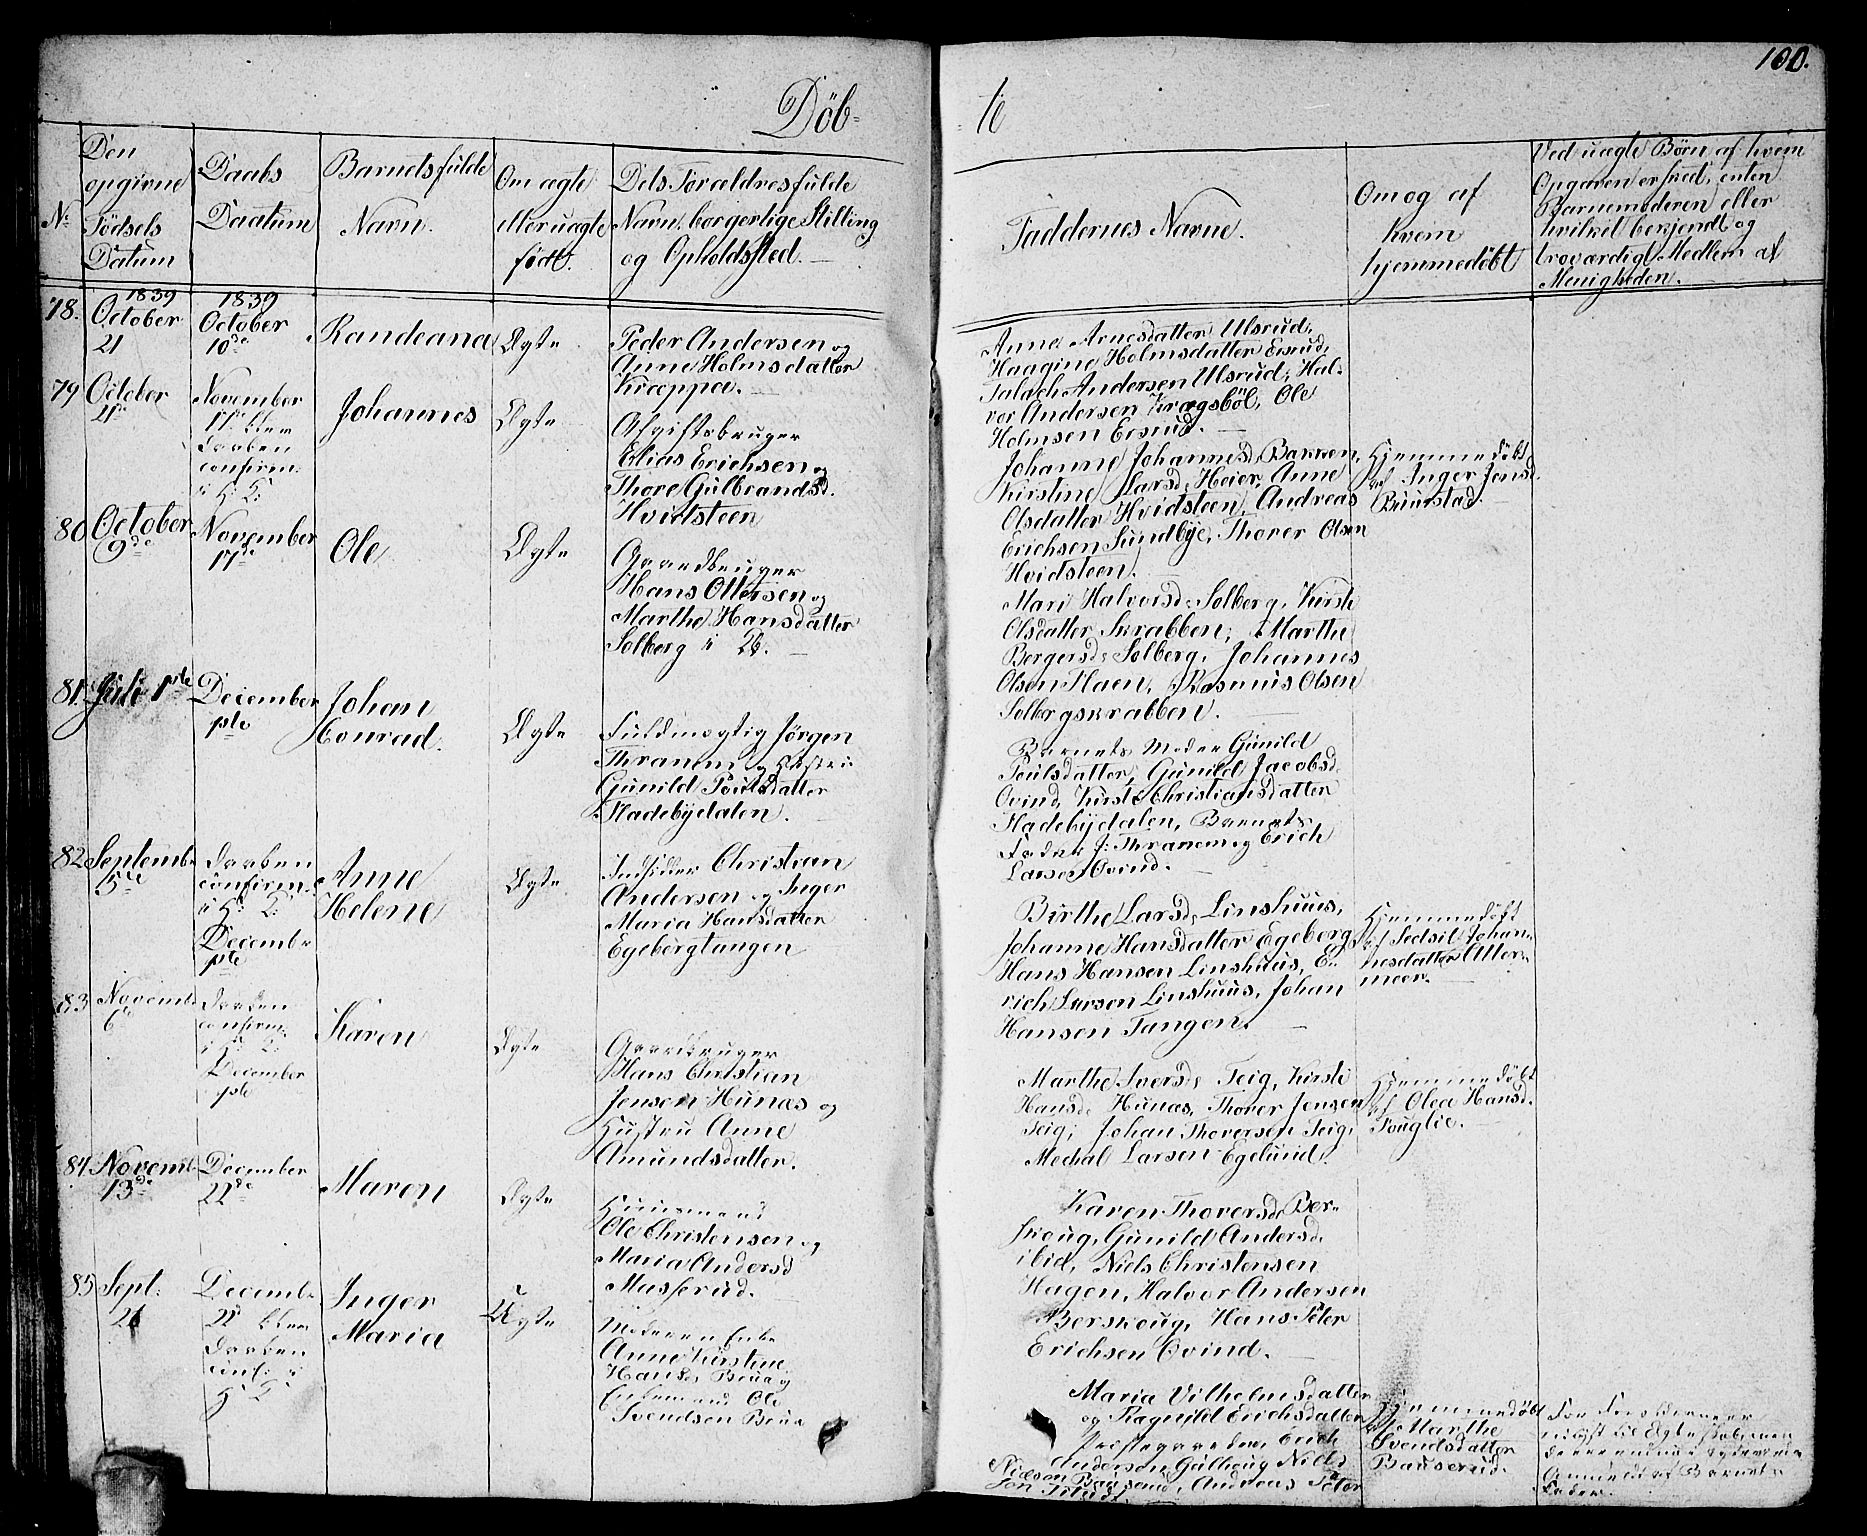 100.
Döb-
-te
Den
opgivne
Födsels
Datum
No
Daabs
Daatum
Barnets fulde
Navn.
Om ægte
eller uægte
født.
Dets Forældres fulde
Navn, borgerlige Stilling
og Opholdssted.
Faddernes Navne.
Om og af
hvem
hjemmedöbt
Ved uægte Börn af hvem
Opgaven er skeed, enten
Barnemoderen eller
hvilket bekjendt og
troværdigt Medlem af
Menigheden.
78.
1839
October
21
1839
October
10de
Randeana
Ægte
Peder Andersen og
Anne Holmsdatter
Kræppa.
Anne Arnesdatter Ulsrud,
Haagine Holmsdatter Ersrud,
Falach Andersen Ulsrud, Hal-
vor Andersen Kragsböl, Ole
Holmsen Ersrud.
79
October
21
November
17 blev
Daaben
confirm:
i H: K:
Johannes
Ægte
Afgiftsbruger
Elias Erichsen og
Thore Gulbrandsd.
Hvidtsteen
Johanne Johannesd. Bakken,
Kirstine Larsd. Heier, Anne
Olsdatter Hvidsteen, Andreas
Erichsen Sundbye, Thorer Olsen
Hvidsteen.
Hjemmedöbt
af Inger Jensd.
Buurstad.
80
October
9de
November
17de
Ole
Ægte
Gaardbruger
Hans Ottersen og
Marthe Hansdatter
Solberg i 26.
Mari Halvorsd: Solberg, Kirsti
Olsdatter Skrabben, Marthe
Bergersd: Solberg, Johannes
Olsen Haen, Rasmus Olsen
Solbergskrabben.
81.
Juli 1ste
December
1ste
Johan
Conrad.
Ægte
Fuldmægtig Jørgen
Thranem og Hustru
Gunild Poulsdatter
Hadebyedalen.
Barnets Moder Gunild
Poulsdatter, Gunild Jacobsd.
Ovind, Kirsti Christiansdatter
Hadebyedalen, Barnets
Fader J: Thranem og Erich
Larsen Ovind.
82
Septemb:
5te
Daaben
confirm:
i H: K:
Decemb:
1ste
Anne
Helene
Ægte
Indsidder Christian
Andersen og Inger
Maria Hansdatter
Egebergtangen
Birthe Larsd: Linshuus,
Johanne Hansdatter Egeberg,
Hans Hansen Linshuus, E-
rich Larsen Linshuus, Johan
Hansen Tangen.
Hjemmedöbt
af Sedsil Johan-
nesdatter Otter-
moer.
83
Novemb:
6
Daaben
confirm:
i H: K:
December
1ste
Karen
Ægte
Gaardbruger
Hans Christian
Jensen Hunæs og
Hustru Anne
Amundsdatter.
Marthe Iversd: Teig, Kirsti
Hansd: Hunæs, Thorer Jensen
Teig, Johan Thoversen Teig,
Mechal Larsen Egelund.
Hjemmedöbt
af Olea Hansd.
Fouglie.
84
Novemb:
13de
December
22de
Maren
Ægte
Huusmand
Ole Christensen og
Maria Andersd
Musserud.
Karen Thoversd. Ber-
skoug, Gunild Andersd.
ibid, Niels Christensen
Hagen, Halvor Andersen
Berskoug, Hans Peter
Erichsen Ovind.
85
Sept:
21
Decemb:
22 blev
Daaben
conf: i
H: K:
Inger
Maria
Uægte
Moderen Enke
Anne Kirstine
Hansd: Brua og
Enkemand Ole
Svendsen Brua
Maria Vilhelmsdatter
og Ragnild Erichsdatter
Præstegaarden, Erich
Andersen Gulhoug, Niels
Nielsen Bauserud, Andreas Peter
Hjemmedöbt
af Marthe
Svendsdatter
Bauserud.
Barnets
Fader.